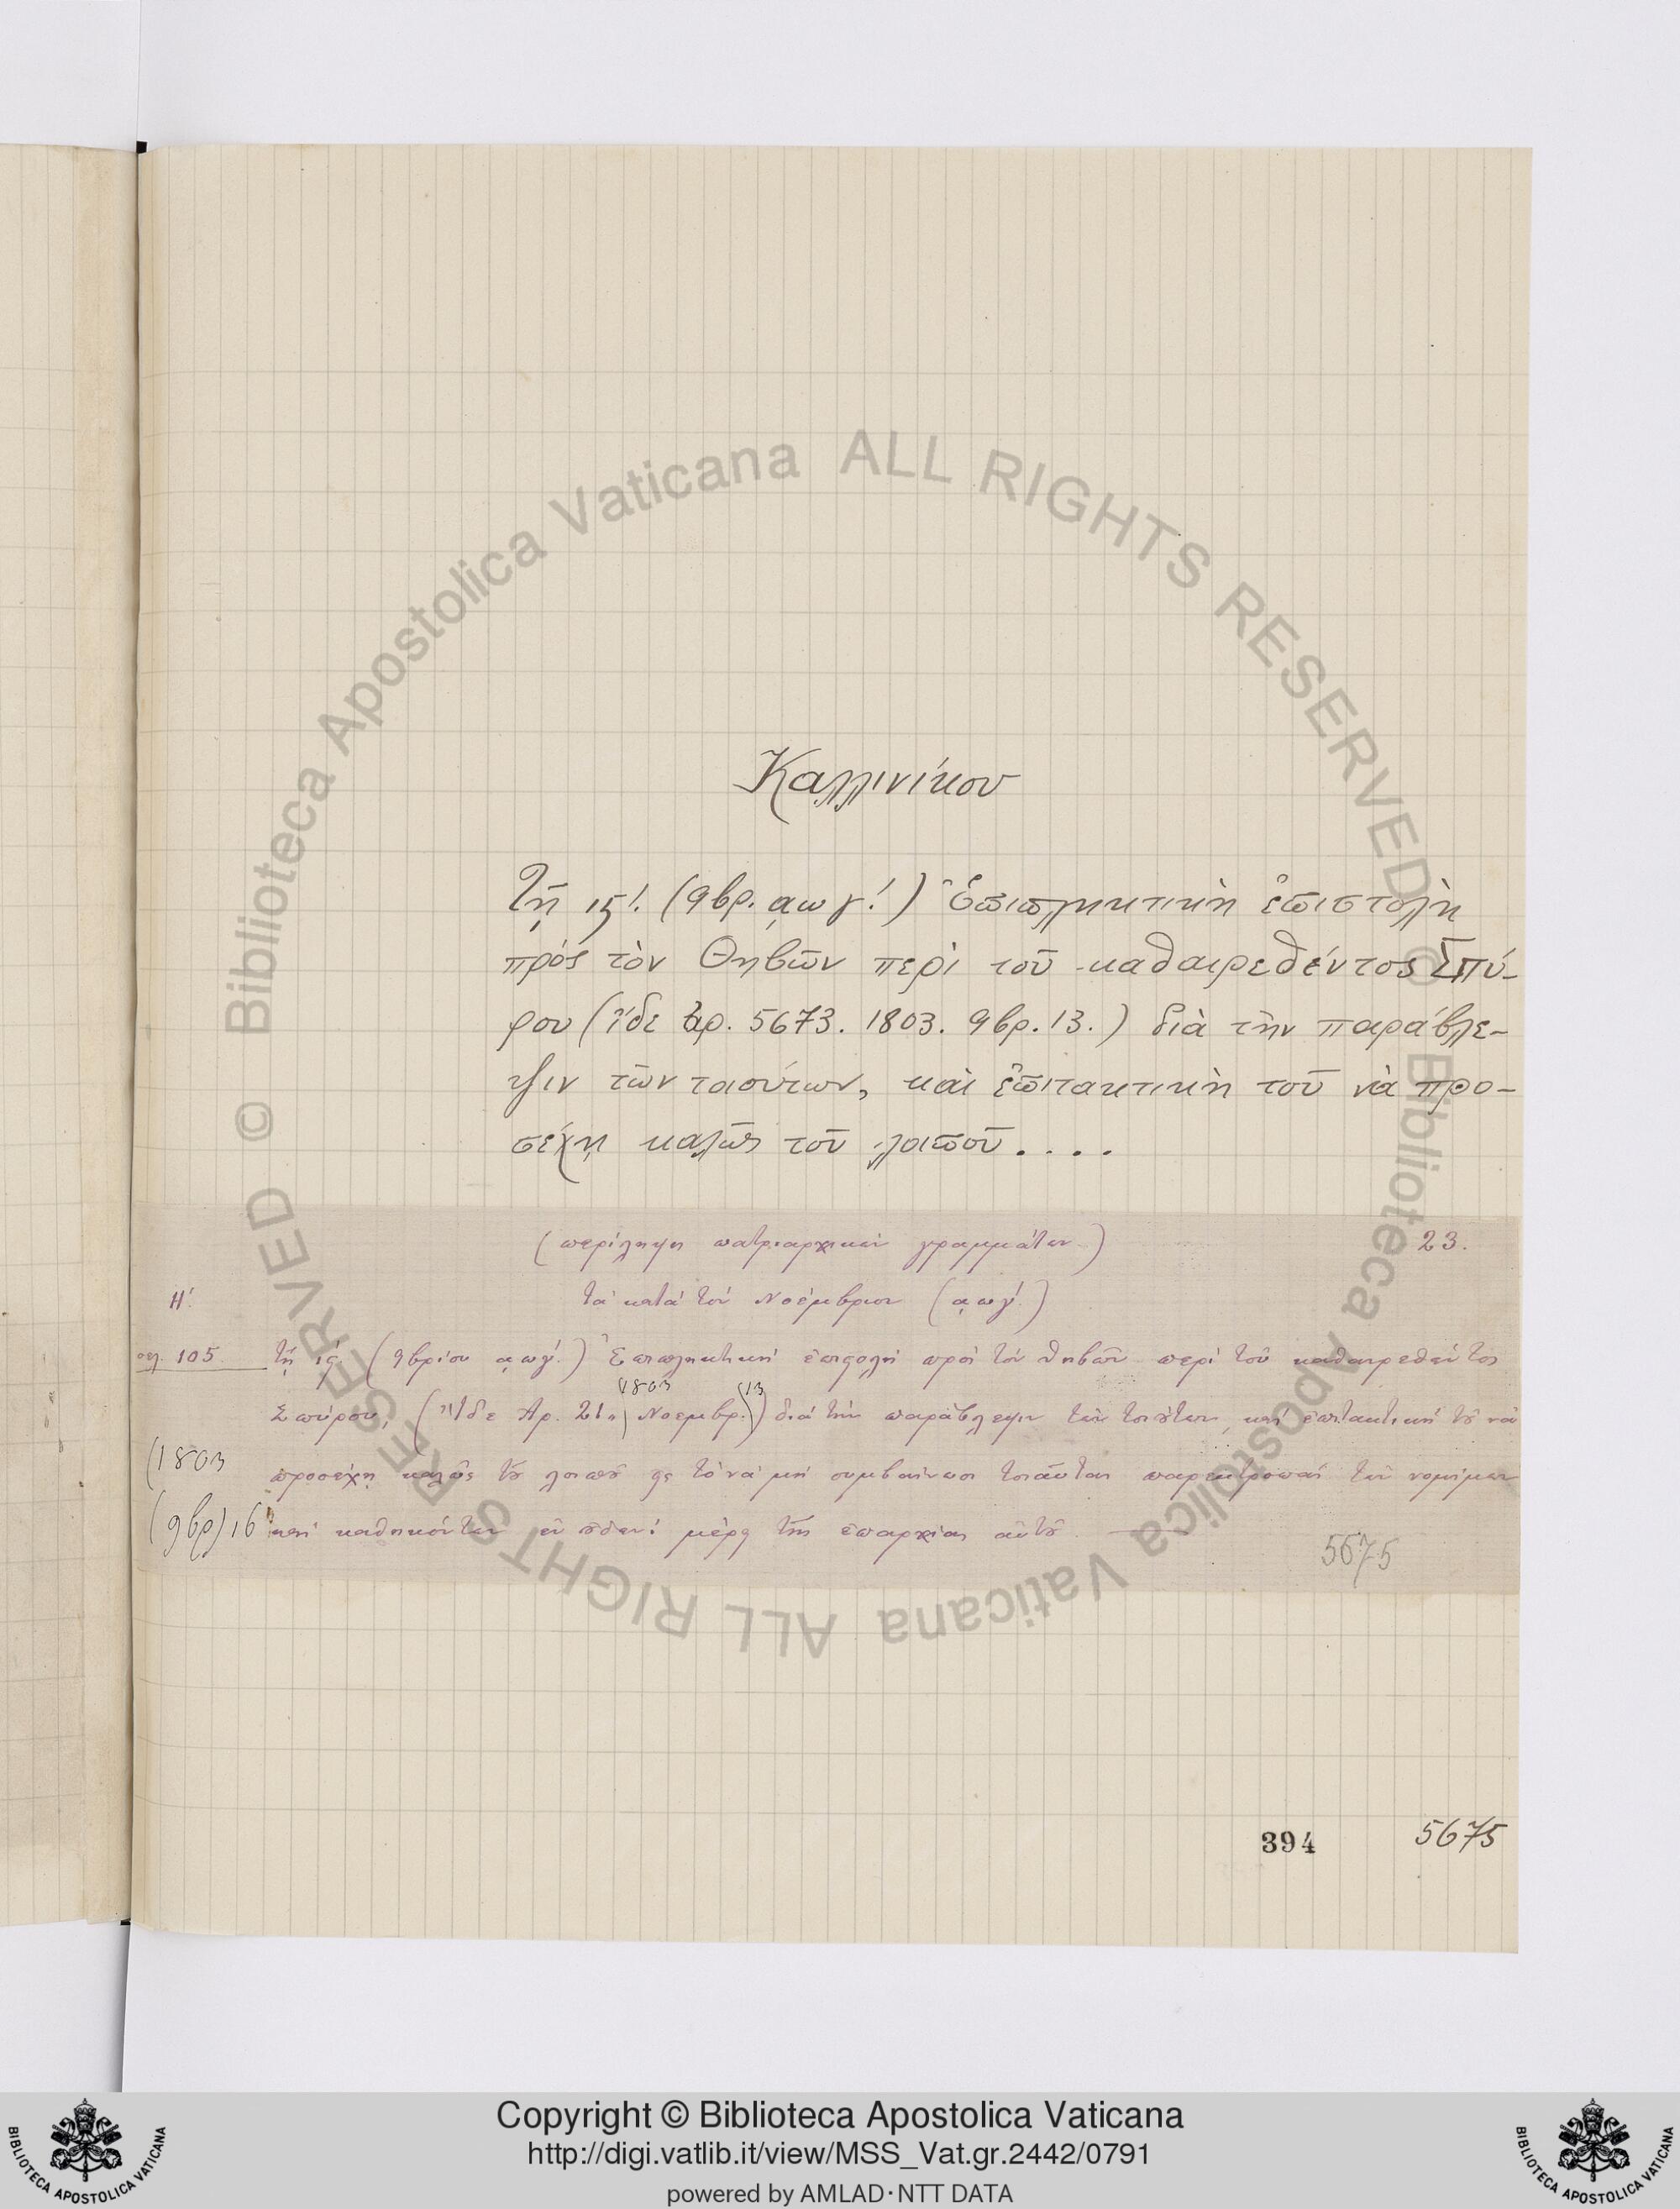 Καλλινίκου
Τῇ ις΄. (9βρ. αωγ΄.) Ἐπιπληκτικὴ ἐπιστολὴ
πρὸς τὸν Θηβῶν περὶ τοῦ καθαιρεθέντος Σπύ-
ρου (ἴδε ἀρ. 5673. 1803. 9βρ. 13.) διὰ τὴν παράβλε-
ψιν τῶν τοιούτων, καὶ ἐπιτακτικὴ τοῦ νὰ προ-
σέχῃ καλῶς τοῦ λοιποῦ....
(περίληψη πατριαρχικῶν γραμμάτων) 23.
Η΄. τὰ κατὰ τὸν Νοέμβριον (αωγ΄.)
σελ. 105 τῇ ις΄ (9βρίου αωγ΄.) Ἐπιπληκτικὴ ἐπιστολὴ πρὸς τὸν Θηβῶν περὶ τοῦ καθαιρεθέντος
(1803 (13
Σπύρου, (Ἴδε Ἀρ. 21, Νοεμβρ.) διὰ τὴν παράβλεψιν τῶν τοιούτων, καὶ ἐπιτακτικὴ τοῦ νὰ
(1803 προσέχῃ καλῶς τοῦ λοιποῦ εἰς τὸ νὰ μὴ συμβαίνωσι τοιαῦται παρεκτροπαὶ τῶν νομίμων
(9βρ) 16 καὶ καθηκόντων ἐν οὐδενὶ μέρει τῆς ἐπαρχίας αὐτοῦ
5675
394 5675
Copyright © Biblioteca Apostolica Vaticana
http://digi.vatlib.it/view/MSS_Vat.gr.2442/0791
powered by AMLAD·NTT DATA
BIBLIOTECA APOSTOLICA VATICANA
BIBLIOTECA APOSTOLICA VATICANA
© Biblioteca Apostolica Vaticana ALL RIGHTS RESERVED
© Biblioteca Apostolica Vaticana ALL RIGHTS RESERVED